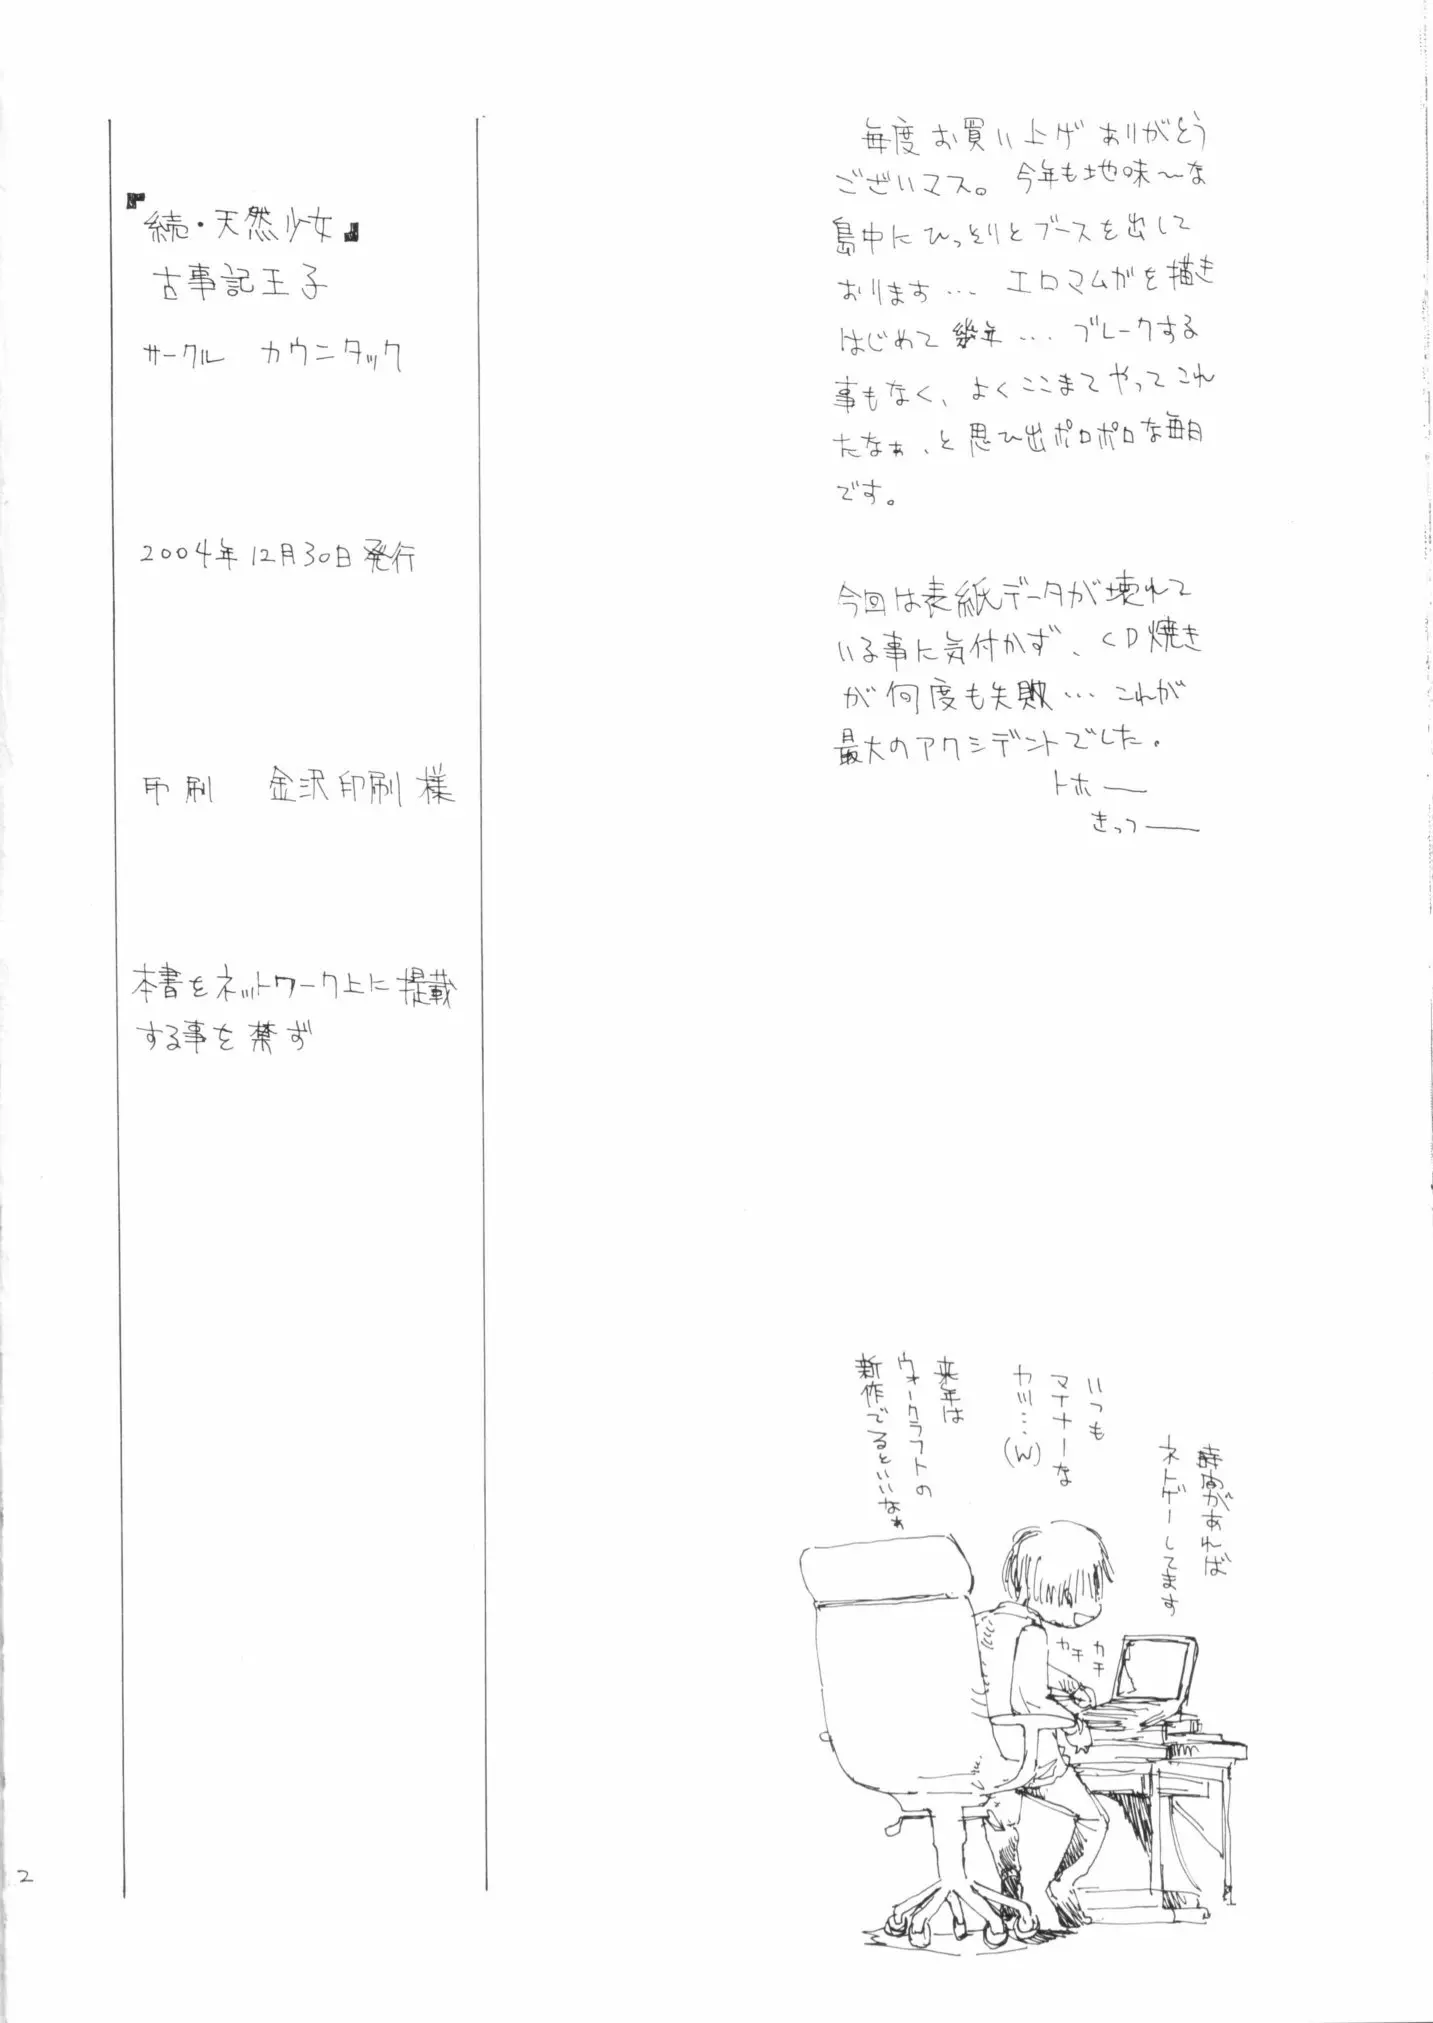 毎度お買い上げありがとう
ございマス。今年も地味〜な
島中にひっそりとブースを出して
おります… エロマムガを描き
はじめて幾年… ブレークする
事もなく、よくここまでやってこれ
たなぁ、と思ひ出ポロポロな毎日
です。
今回は表紙データが壊れて
いる事に気付かず、CD焼き
が何度も失敗… これが
最大のアクシデントでした。
トホー
きっつー
『続・天然少女』
古事記王子
サークル カウンタック
2004年12月30日発行
印刷 金沢印刷様
本書をネットワーク上に掲載
する事を禁ず
時間があれば
ネトゲーしてます
いつも
マイナーな
カリ…(W)
来年は
ウォークラフトの
新作でるといいなぁ
カチ
カチ
2